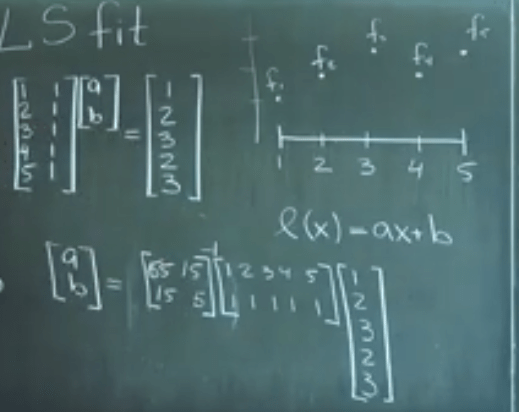 LS fit
[1 1; 2 1; 3 1; 4 1; 5 1] [a; b] = [1; 2; 3; 2; 3]
f₁ f₂ f₃ f₄ f₅
1 2 3 4 5
l(x) = ax+b
[a; b] = [55 15; 15 5]⁻¹ [1 2 3 4 5; 1 1 1 1 1] [1; 2; 3; 2; 3]